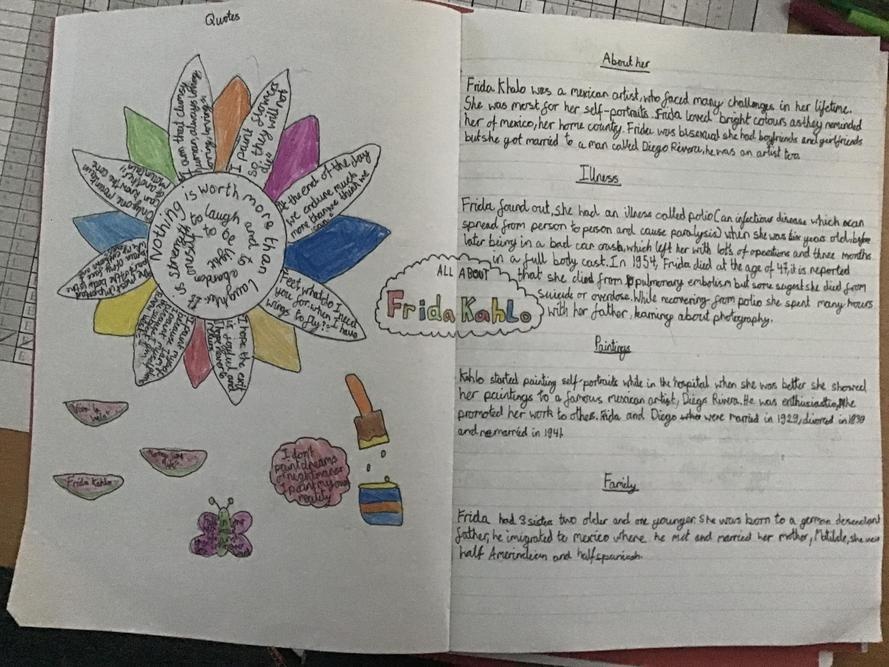 Quotes
I paint flowers
so they will not
die
At the end of the day
we endure much
more than we think we
can
Feet, what do I need
you for when I have
wings to fly?
I hope the exit
is joyful and
I hope never to
Only one mountain
can know the core
of another
mountain
Nothing is worth more than laughter. It
is strength to laugh and to abandon
to be light
Viva la
vida
Frida Kahlo
I don't
paint dreams
or nightmares
I paint my own
reality
ALL ABOUT
Frida Kahlo
About her
Frida Khalo was a mexican artist, who faced many challenges in her lifetime.
She was most for her self-portraits. Frida loved bright colours as they reminded
her of mexico, her home county. Frida was bisexual she had boyfriends and gurlfriends
but she got married to a man called Diego Rivera, he was an artist too.
Illness
Frida found out, she had an illness called polio (an infectious disease which can
spread from person to person and cause paralysis) when she was six years old, before
later being in a bad car crash, which left her with lots of operations and three months
in a full body cast. In 1954, Frida died at the age of 47, it is reported
that she died from pulmonary embolism but some suggest she died from
suicide or overdose. While recovering from polio she spent many hours
with her father, learning about photography.
Paintings
Kahlo started painting self-portraits while in the hospital when she was better she showed
her paintings to a famous mexican artist, Diego Rivera. He was enthusiastic, he
promoted her work to others. Frida and Diego were married in 1929, divorced in 1939
and remarried in 1941
Family
Frida had 3 sisters two older and one younger. She was born to a german descendant
father, he imigrated to mexico where he met and married her mother, Matilde, she was
half Amerindian and half spanish.